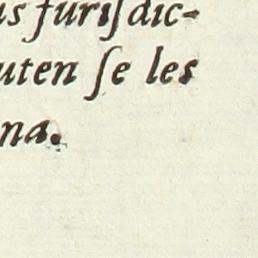 us juriſdic-
uten ſe les
na.